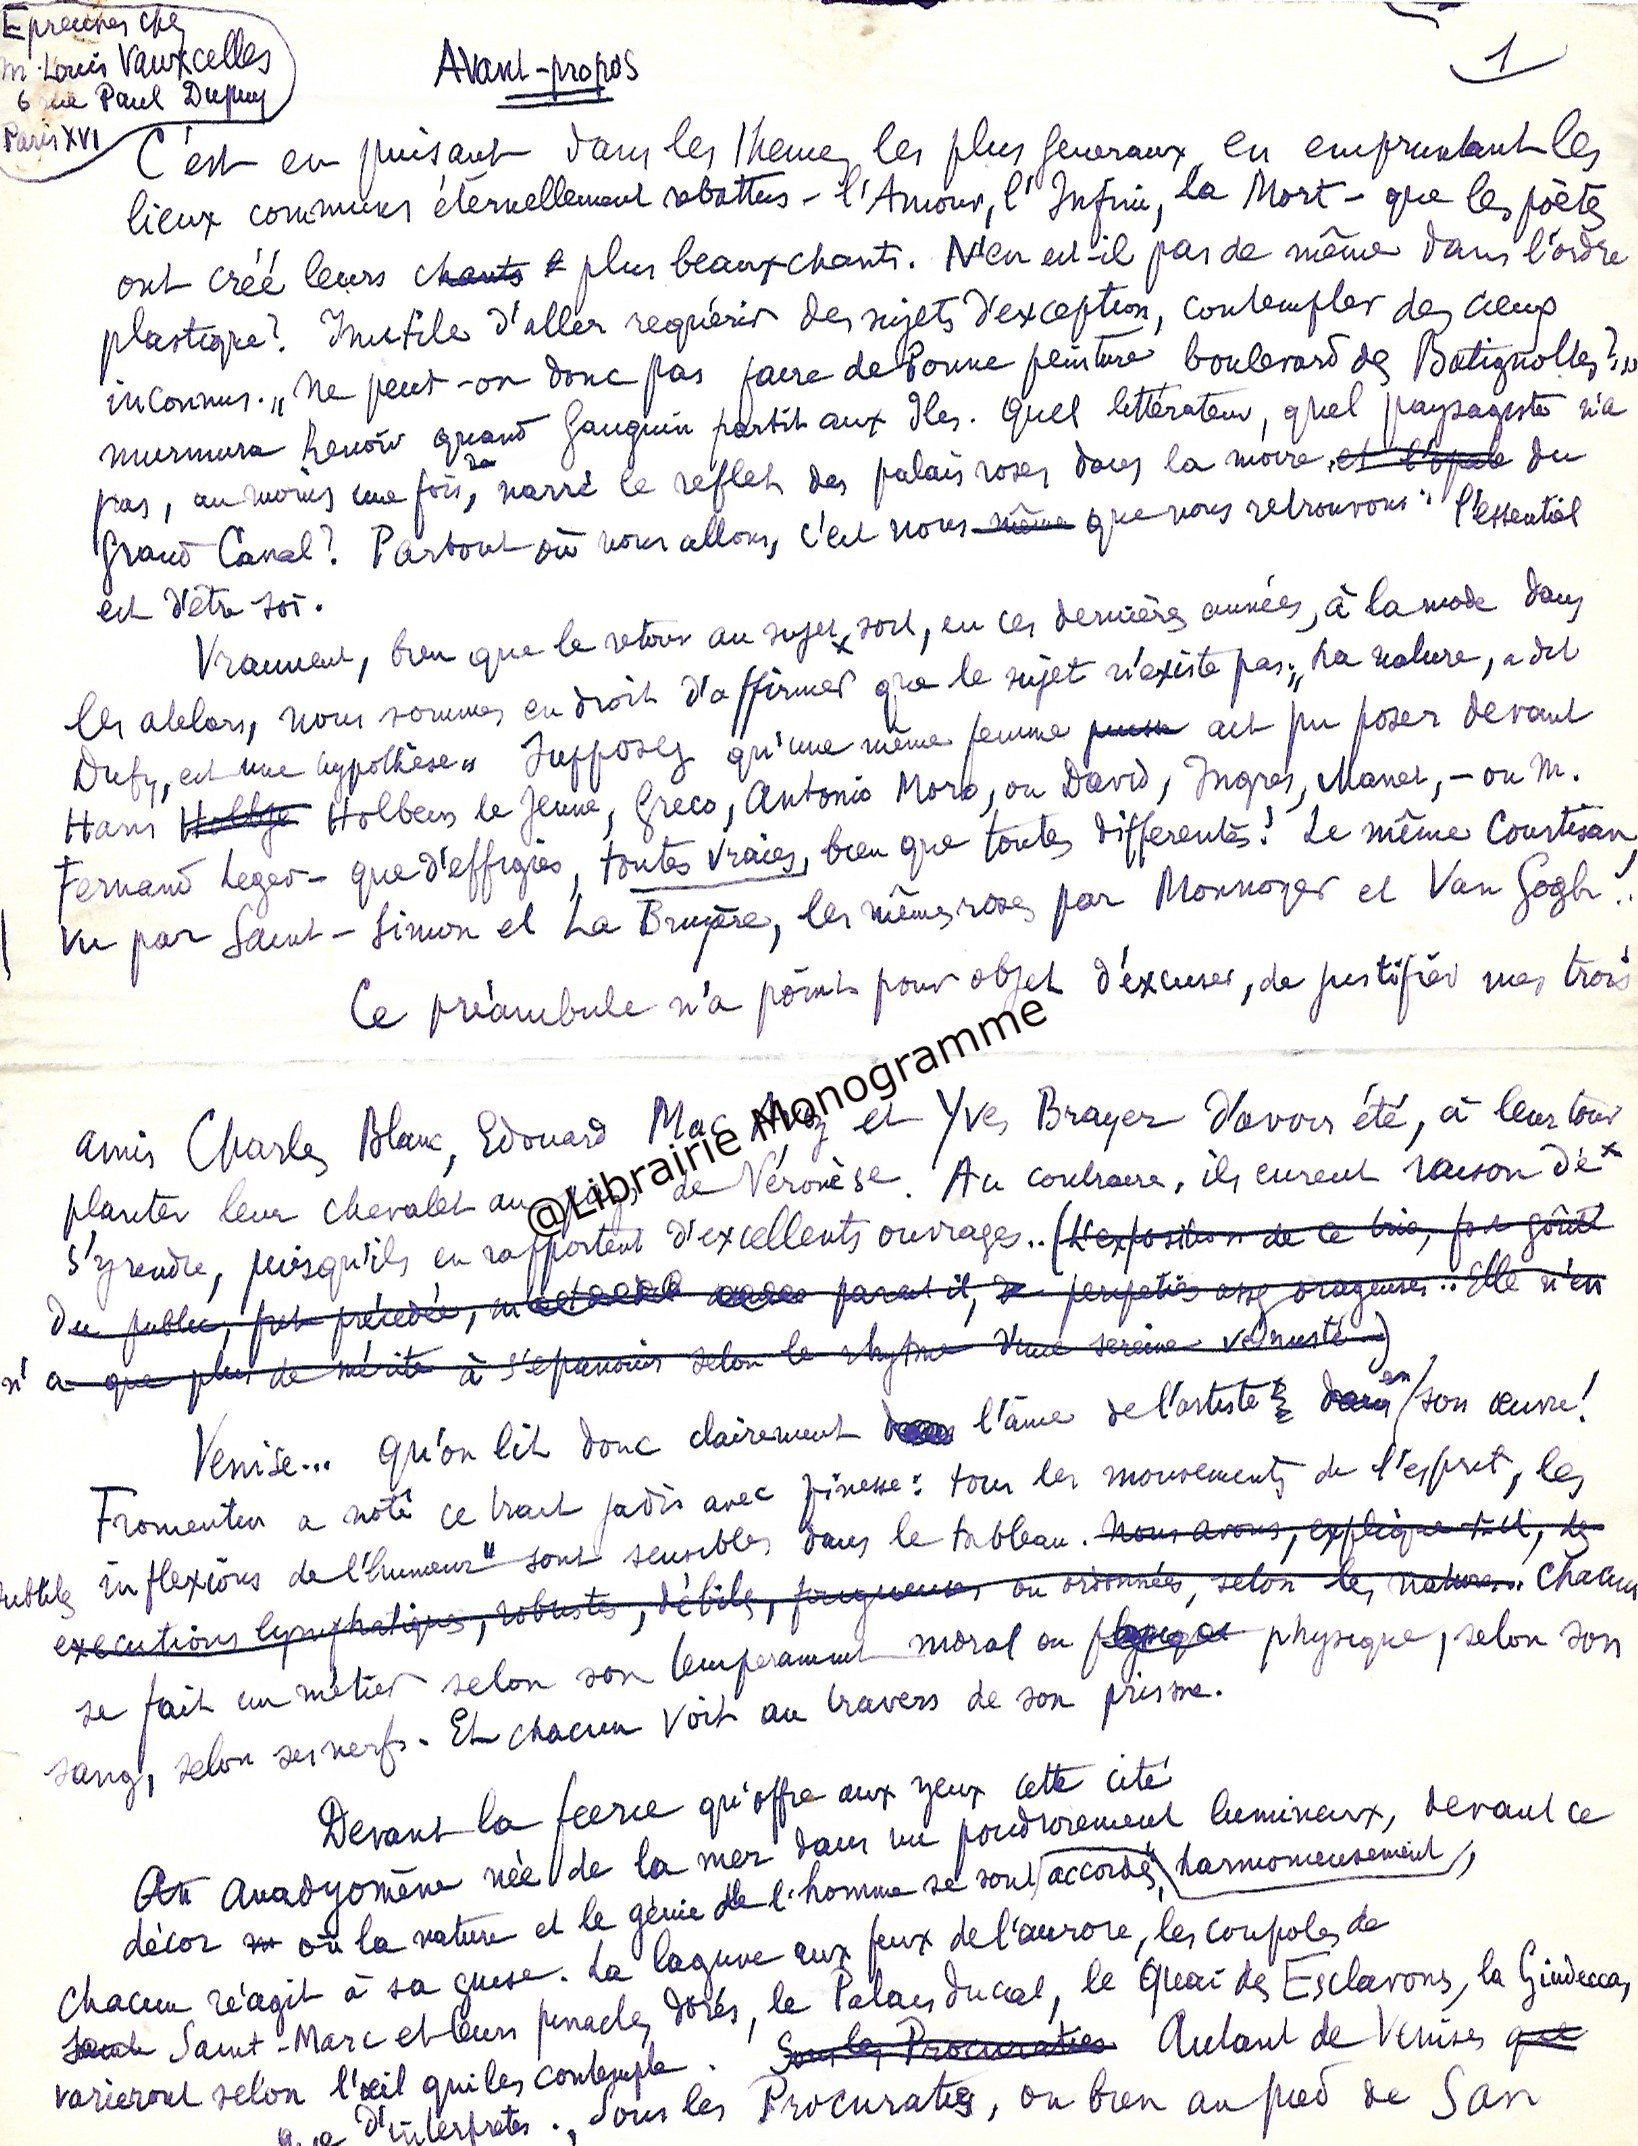 Epreuves chez
M. Louis Vauxcelles
6 rue Paul Dupuy
Paris XVI
Avant-propos
1
C'est en puisant dans les themes les plus généraux, en empruntant les
lieux communs éternellement rebattus – l'Amour, l'Infini, la Mort – que les poètes
ont créé leurs chants plus beaux chants. N'en est-il pas de même dans l'ordre
plastique? Inutile d'aller requérir des sujets d'exception, contempler des cieux
inconnus. "Ne peut-on donc pas faire de bonne peinture boulevard des Batignolles?"
murmura Renoir quand Gauguin partit aux Iles. Quel littérateur, quel paysagiste n'a
pas, au moins une fois, narré le reflet des palais roses dans la moire et l'opale du
Grand Canal? Partout où nous allons, c'est nous-même que nous retrouvons : l'essentiel
est d'être soi.
Vraiment, bien que le retour au sujet soit, en ces dernières années, à la mode dans
les ateliers, nous sommes en droit d'affirmer que le sujet n'existe pas. "La nature, a dit
Dufy, est une hypothèse" Supposez qu'une même femme puisse ait pu poser devant
Hans Holbein le Jeune, Greco, Antonio Moro, ou David, Ingres, Manet, – ou M.
Fernand Leger – que d'effigies, toutes vraies, bien que toutes differentes! Le même Courtisan,
vu par Saint-Simon et La Bruyère, les mêmes roses par Monnoyer et Van Gogh!..
Ce préambule n'a point pour objet d'excuser, de justifier mes trois
amis Charles Blanc, Edouard Mac Avoy et Yves Brayer d'avoir été, à leur tour
planter leur chevalet au pays de Véronèse. Au contraire, ils eurent raison de
s'y rendre, puisqu'ils en rapportent d'excellents ouvrages.. (L'exposition de ce trio, fort goûté
du public, fut précédée, parait il, de peripeties assez orageuses.. Elle n'en
n'a que plus de mérite à s'epanouir selon le rhytme d'une sereine venusté)
Venise... qu'on lit donc clairement l'âme de l'artiste dans en son œuvre!
Fromentin a noté ce trait jadis avec finesse: tous les mouvements de l'esprit, les
subtiles inflexions de l'humeur" sont sensibles dans le tableau. Nous avons, explique t-il, des
executions lymphatiques, robustes, débiles, fougueuses ou ordonnées, selon les natures.. Chacun
se fait un métier selon son temperament moral ou physique, selon son
sang, selon ses nerfs. Et chacun voit au travers de son prisme.
Devant la feerie qu'offre aux yeux cette cité
Anadyomène née de la mer dans un poudroiement lumineux, devant ce
décor où la nature et le génie de l'homme se sont accordés harmonieusement,
chacun réagit à sa guise. La lagune aux feux de l'aurore, les coupoles de
Saint-Marc et leurs pinacles dorés, le Palais Ducal, le Quai des Esclavons, la Giudecca,
varieront selon l'œil qui les contemple. Sous les Procuraties Autant de Venises que
que d'interpretes. Sous les Procuraties, ou bien au pied de San
@Librairie Monogramme